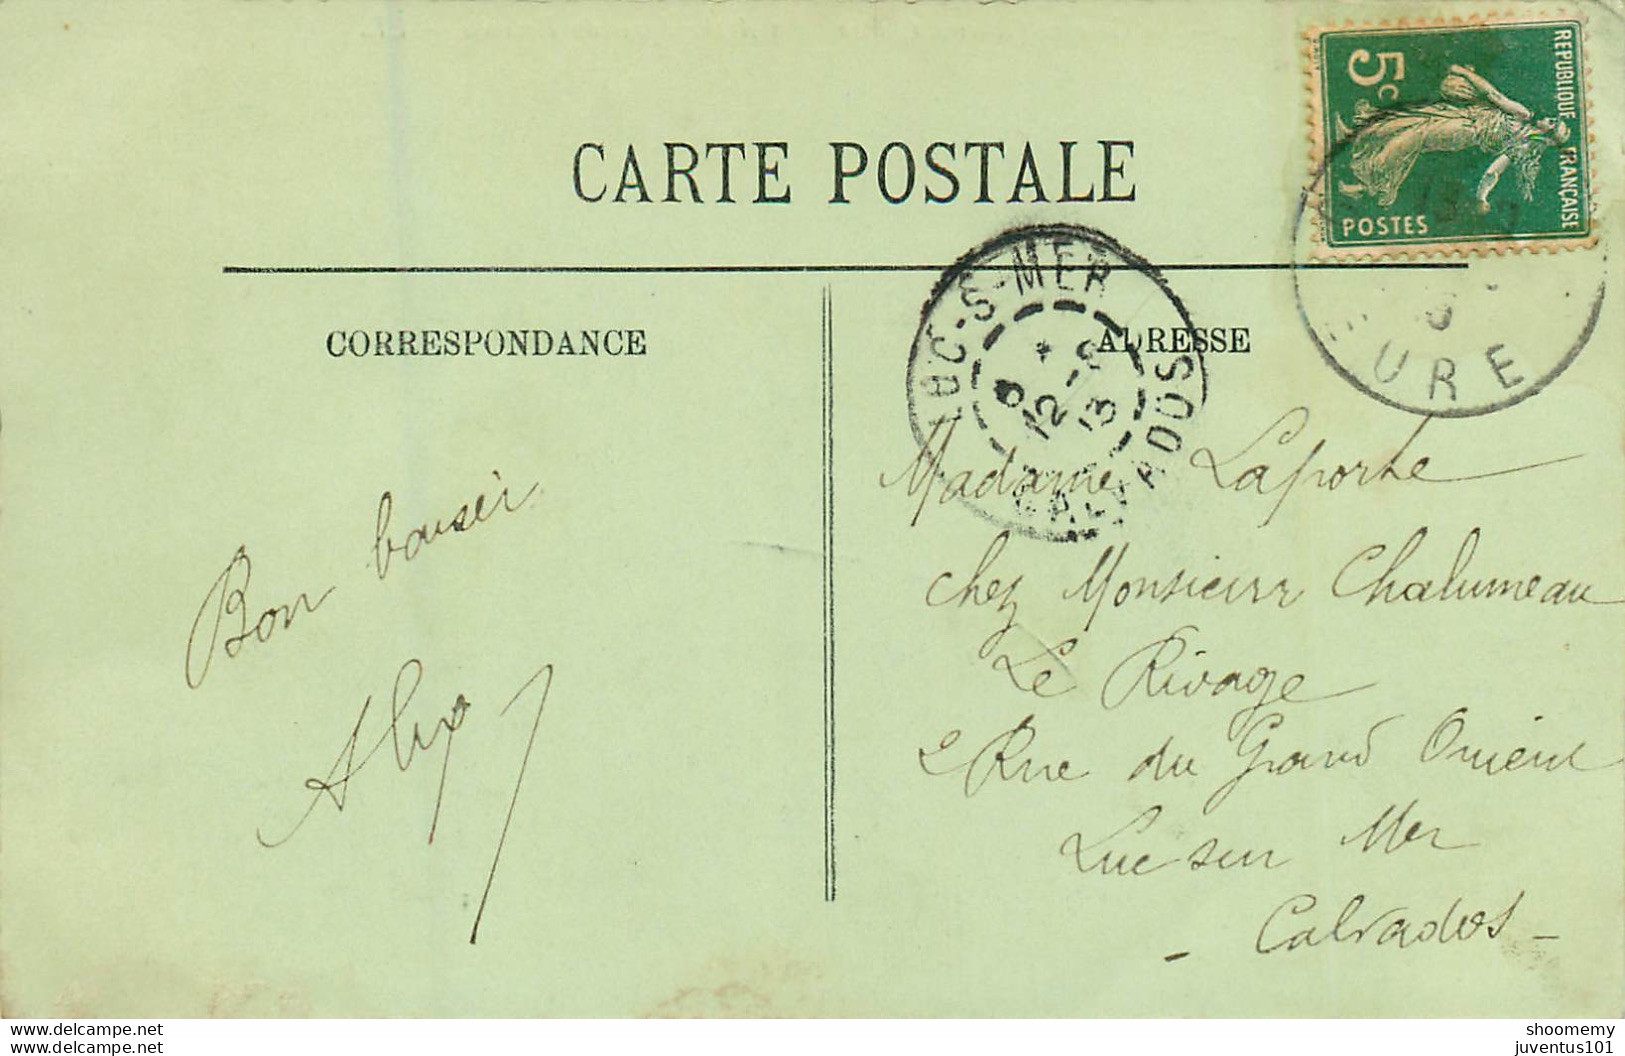 CARTE POSTALE
CORRESPONDANCE
ADRESSE
REPUBLIQUE FRANÇAISE
5c
POSTES
LUC-S-MER
12-8
13
CALVADOS
EURE
Bon baiser
Madame Laporte
chez Monsieur Chalumeau
Le Rivage
2 Rue du Grand Orient
Luc sur Mer
- Calvados -
www.delcampe.net
www.delcampe.net
shoomemy
juventus101